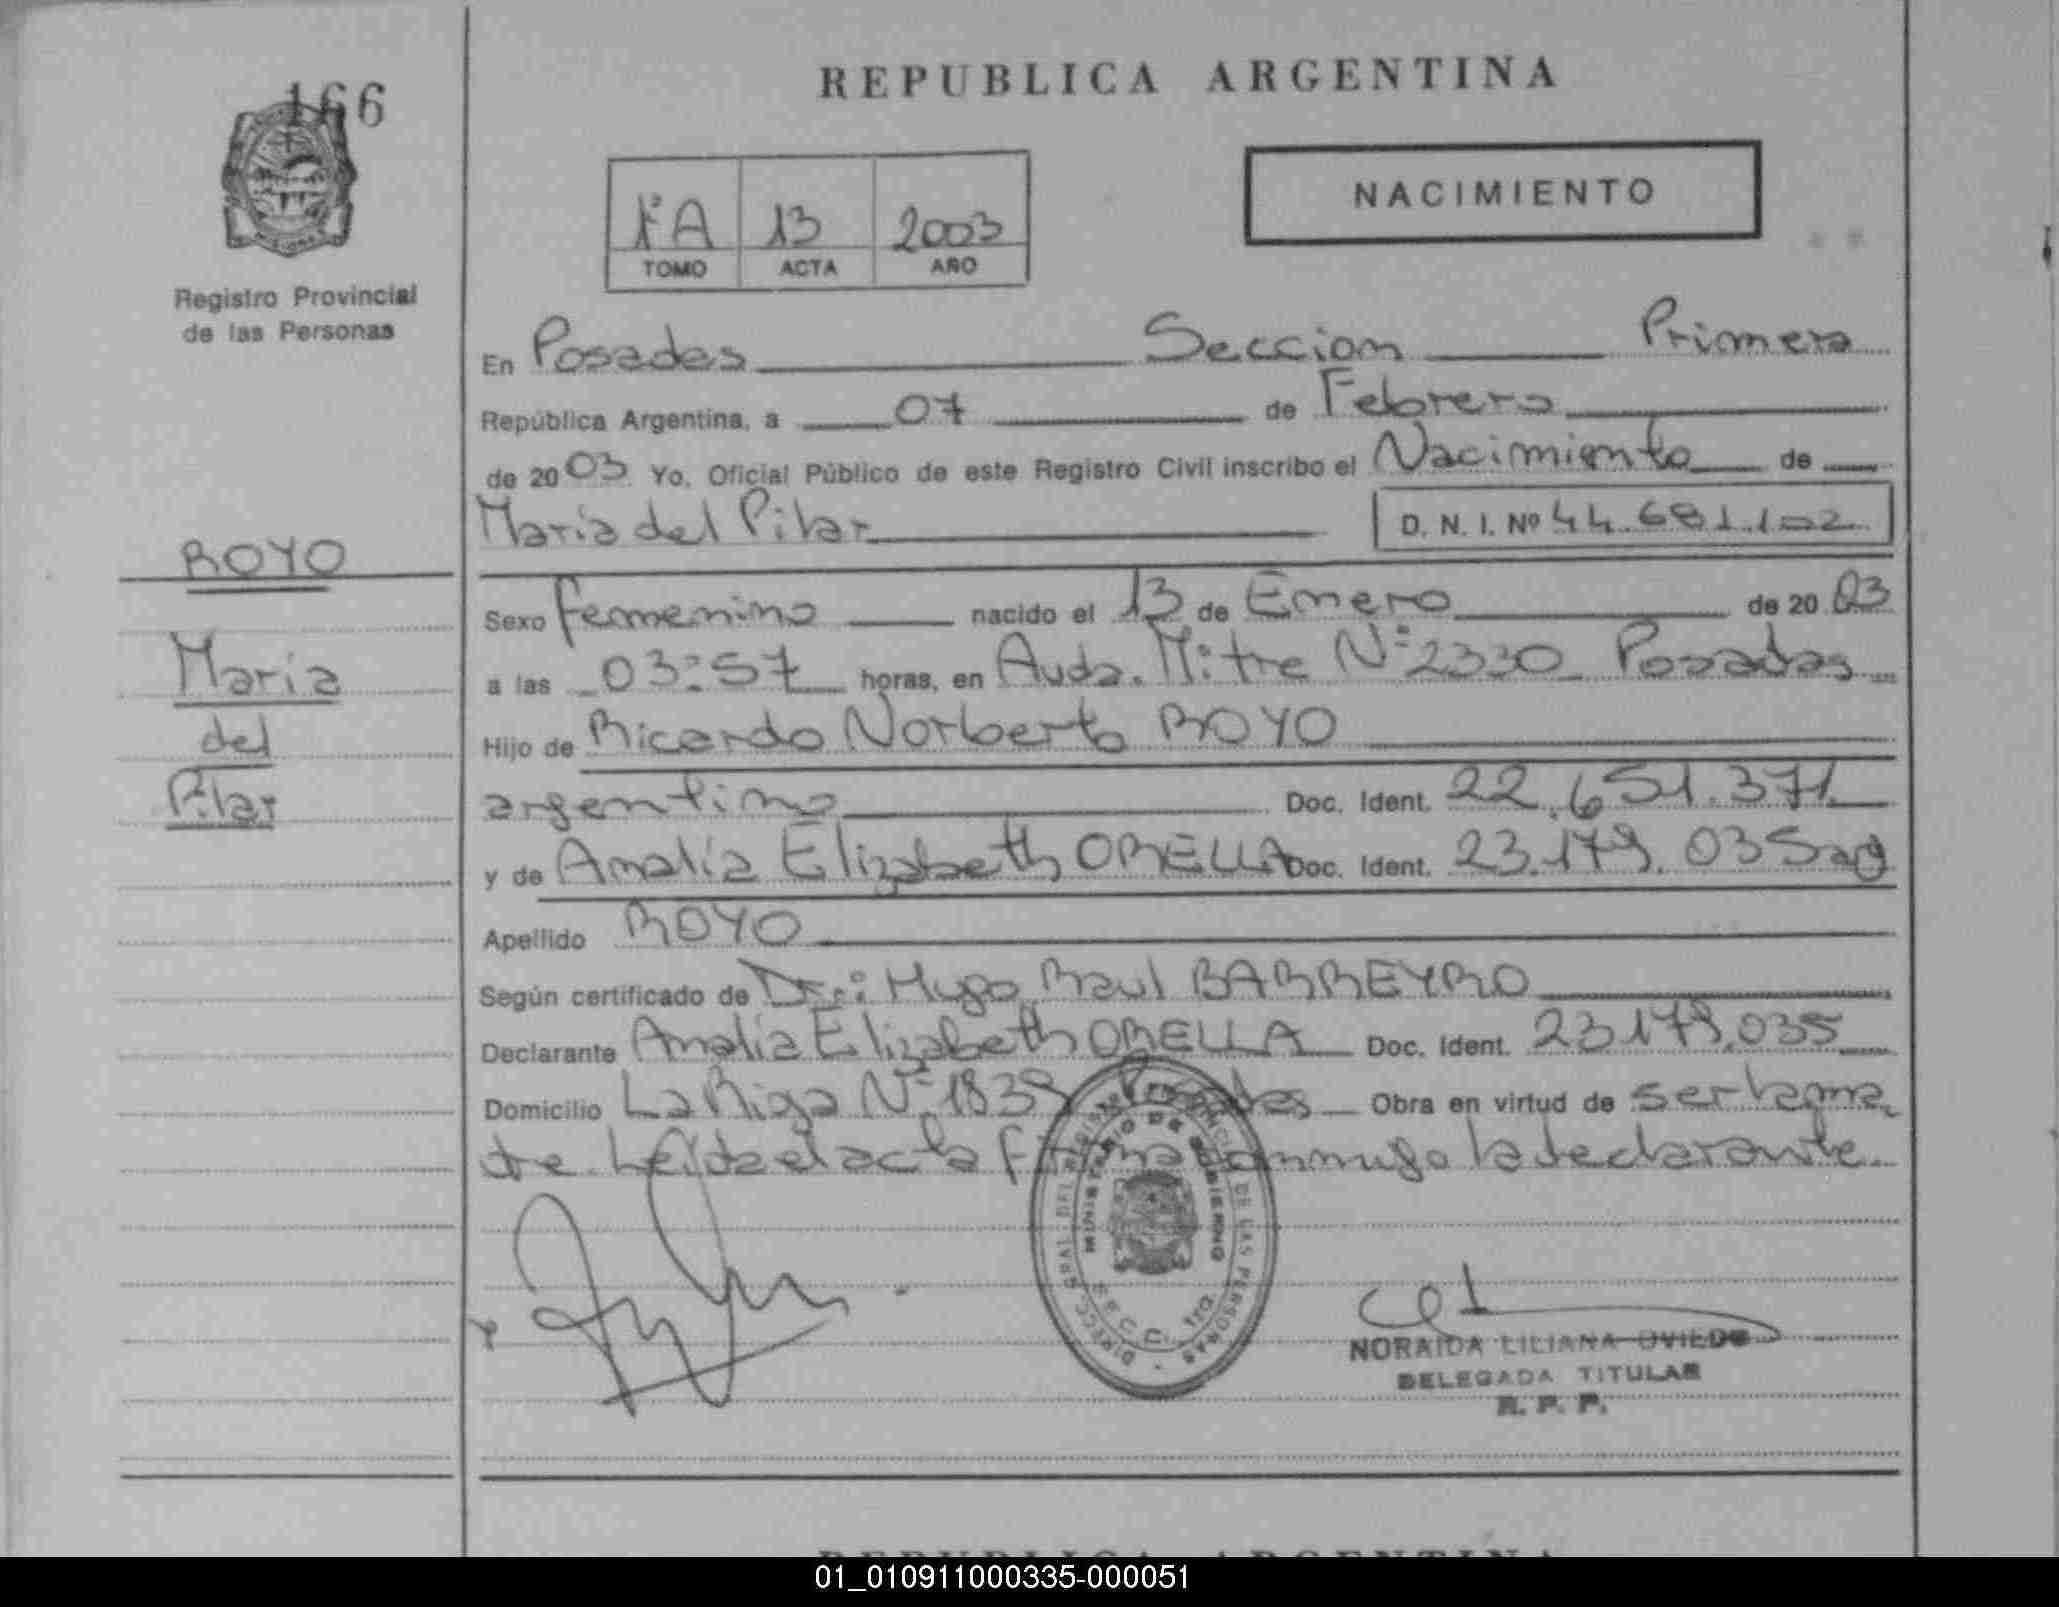 166
REPUBLICA ARGENTINA
NACIMIENTO
1ºA 13 2003
TOMO ACTA AÑO
Registro Provincial
de las Personas
En Posadas Seccion Primera
República Argentina, a 07 de Febrero
de 2003 Yo, Oficial Público de este Registro Civil inscribo el Nacimiento de
María del Pilar D. N. I. Nº 44.681.102
ROYO
María
del
Pilar
Sexo femenino nacido el 13 de Enero de 2003
a las 03:57 horas, en Avda. Mitre Nº 2330 Posadas
Hijo de Ricardo Norberto ROYO
argentino Doc. Ident. 22.651.371
y de Amalia Elizabeth ORELLA Doc. Ident. 23.179.035 arg
Apellido ROYO
Según certificado de Dr.: Hugo Raul BARREYRO
Declarante Amalia Elizabeth ORELLA Doc. Ident. 23179.035
Domicilio La Rioja Nº 1839 Posadas Obra en virtud de ser la ma
dre. Leída el acta firma conmigo la declarante.
MINISTERIO DE GOBIERNO
DIRECC. GRAL. DEL REGISTRO PROVINCIAL DE LAS PERSONAS
SECC. 1ra.
NORAIDA LILIANA OVIEDO
DELEGADA TITULAR
R. P. P.
REPUBLICA ARGENTINA
01_010911000335-000051